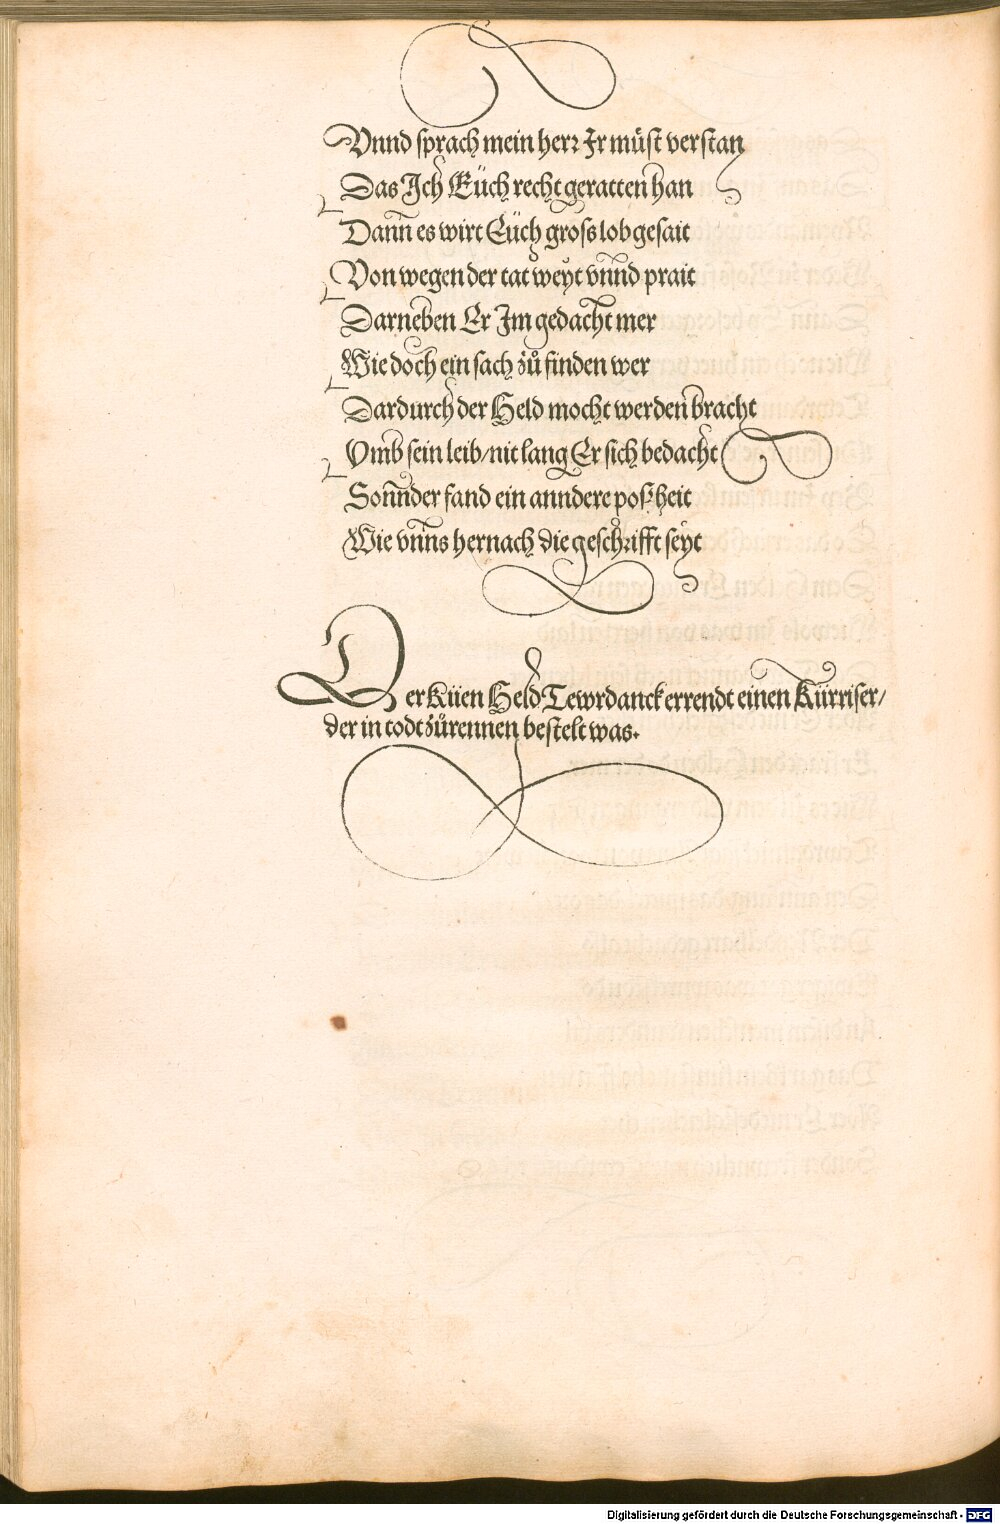 Vnnd sprach mein herr Jr müst verstan
Das Jch Eüch recht geratten han
Dann es wirt Eüch gross lob gesait
Von wegen der tat weyt vnnd prait
Darneben Er Jm gedacht mer
Wie doch ein sach zů finden wer
Dardurch der Held mocht werden bracht
Vmb sein leib/nit lang Er sich bedacht
Sonnder fand ein anndere poßheit
Wie vnns hernach die geschrifft seyt
Der Küen Held Tewrdanck errendt einen Kürriser/
der in todt zůrennen bestelt was.
Digitalisierung gefördert durch die Deutsche Forschungsgemeinschaft - DFG